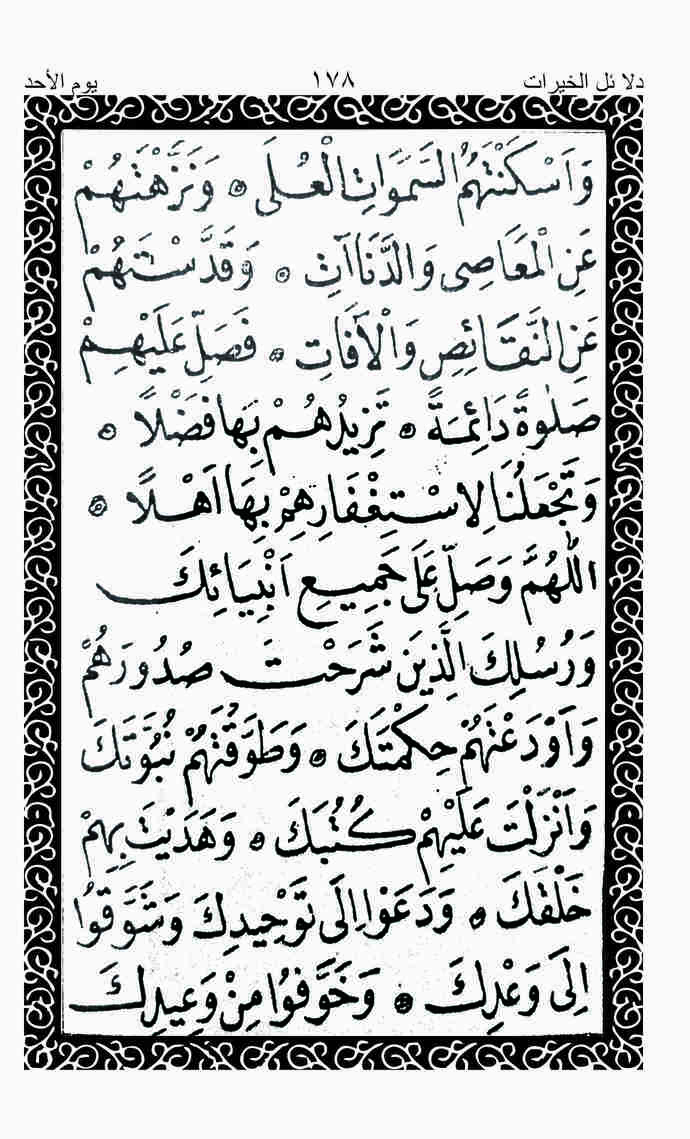 دلائل الخيرات ١٧٨ يوم الأحد
وَاَسْكَنْتَهُمُ السَّمٰوَاتِ الْعُلَى ۞ وَنَزَّهْتَهُمْ
عَنِ الْمَعَاصِى وَالدَّنَاآتِ ۞ وَقَدَّسْتَهُمْ
عَنِ النَّقَائِصِ وَالْاٰفَاتِ ۞ فَصَلِّ عَلَيْهِمْ
صَلٰوةً دَائِمَةً ۞ تَزِيدُهُمْ بِهَا فَضْلًا ۞
وَتَجْعَلُنَا لِاسْتِغْفَارِهِمْ بِهَا اَهْلًا ۞
اَللّٰهُمَّ وَصَلِّ عَلَى جَمِيعِ اَنْبِيَائِكَ
وَرُسُلِكَ الَّذِينَ شَرَحْتَ صُدُورَهُمْ
وَاَوْدَعْتَهُمْ حِكْمَتَكَ ۞ وَطَوَّقْتَهُمْ نُبُوَّتَكَ
وَاَنْزَلْتَ عَلَيْهِمْ كُتُبَكَ ۞ وَهَدَيْتَ بِهِمْ
خَلْقَكَ ۞ وَدَعَوْا اِلَى تَوْحِيدِكَ وَشَوَّقُوا
اِلَى وَعْدِكَ ۞ وَخَوَّفُوا مِنْ وَعِيدِكَ